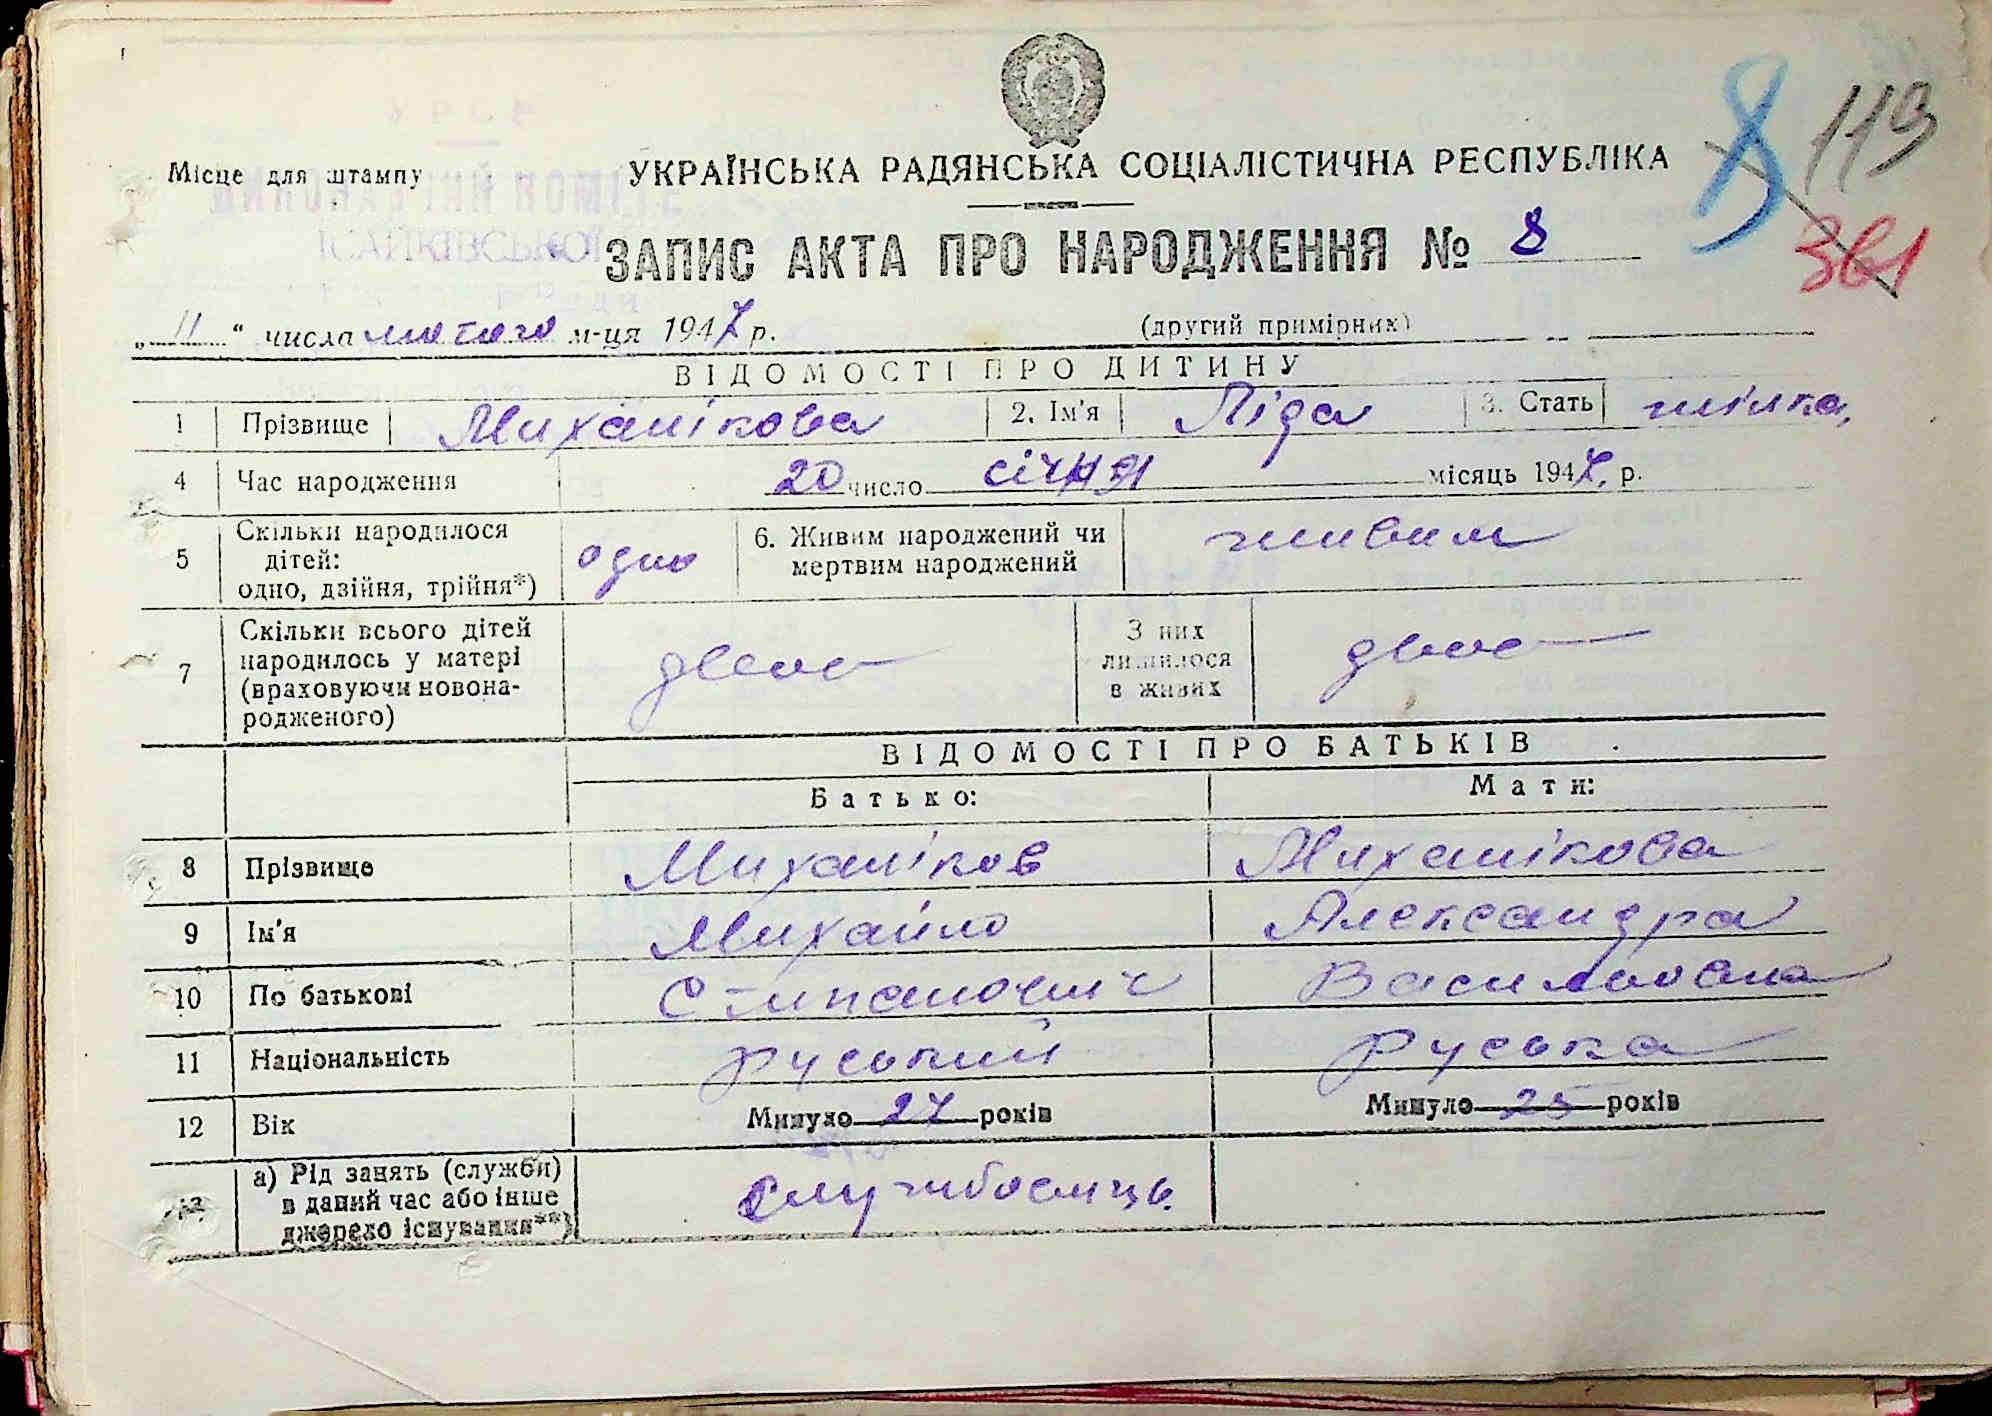 8 113
Місце для штампу
УКРАЇНСЬКА РАДЯНСЬКА СОЦІАЛІСТИЧНА РЕСПУБЛІКА
361
ЗАПИС АКТА ПРО НАРОДЖЕННЯ № 8
„ 11 “ числа лютого м-ця 1947 р. (другий примірник)
ВІДОМОСТІ ПРО ДИТИНУ
1 Прізвище Миханікова 2. Ім'я Ліда 3. Стать жінка,
4 Час народження 20 число січня місяць 1947, р.
5 Скільки народилося дітей: одно, двійня, трійня*) одно 6. Живим народжений чи мертвим народжений живим
7 Скільки всього дітей народилось у матері (враховуючи новонародженого) двоє З них лишилося в живих двоє
ВІДОМОСТІ ПРО БАТЬКІВ
Батько: Мати:
8 Прізвище Миханіков Миханікова
9 Ім'я Михайло Александра
10 По батькові Стипанович Василовна
11 Національність руський Руська
12 Вік Минуло 27 років Минуло 25 років
13 а) Рід занять (служби) в даний час або інше джерело існування**) Службоємць.